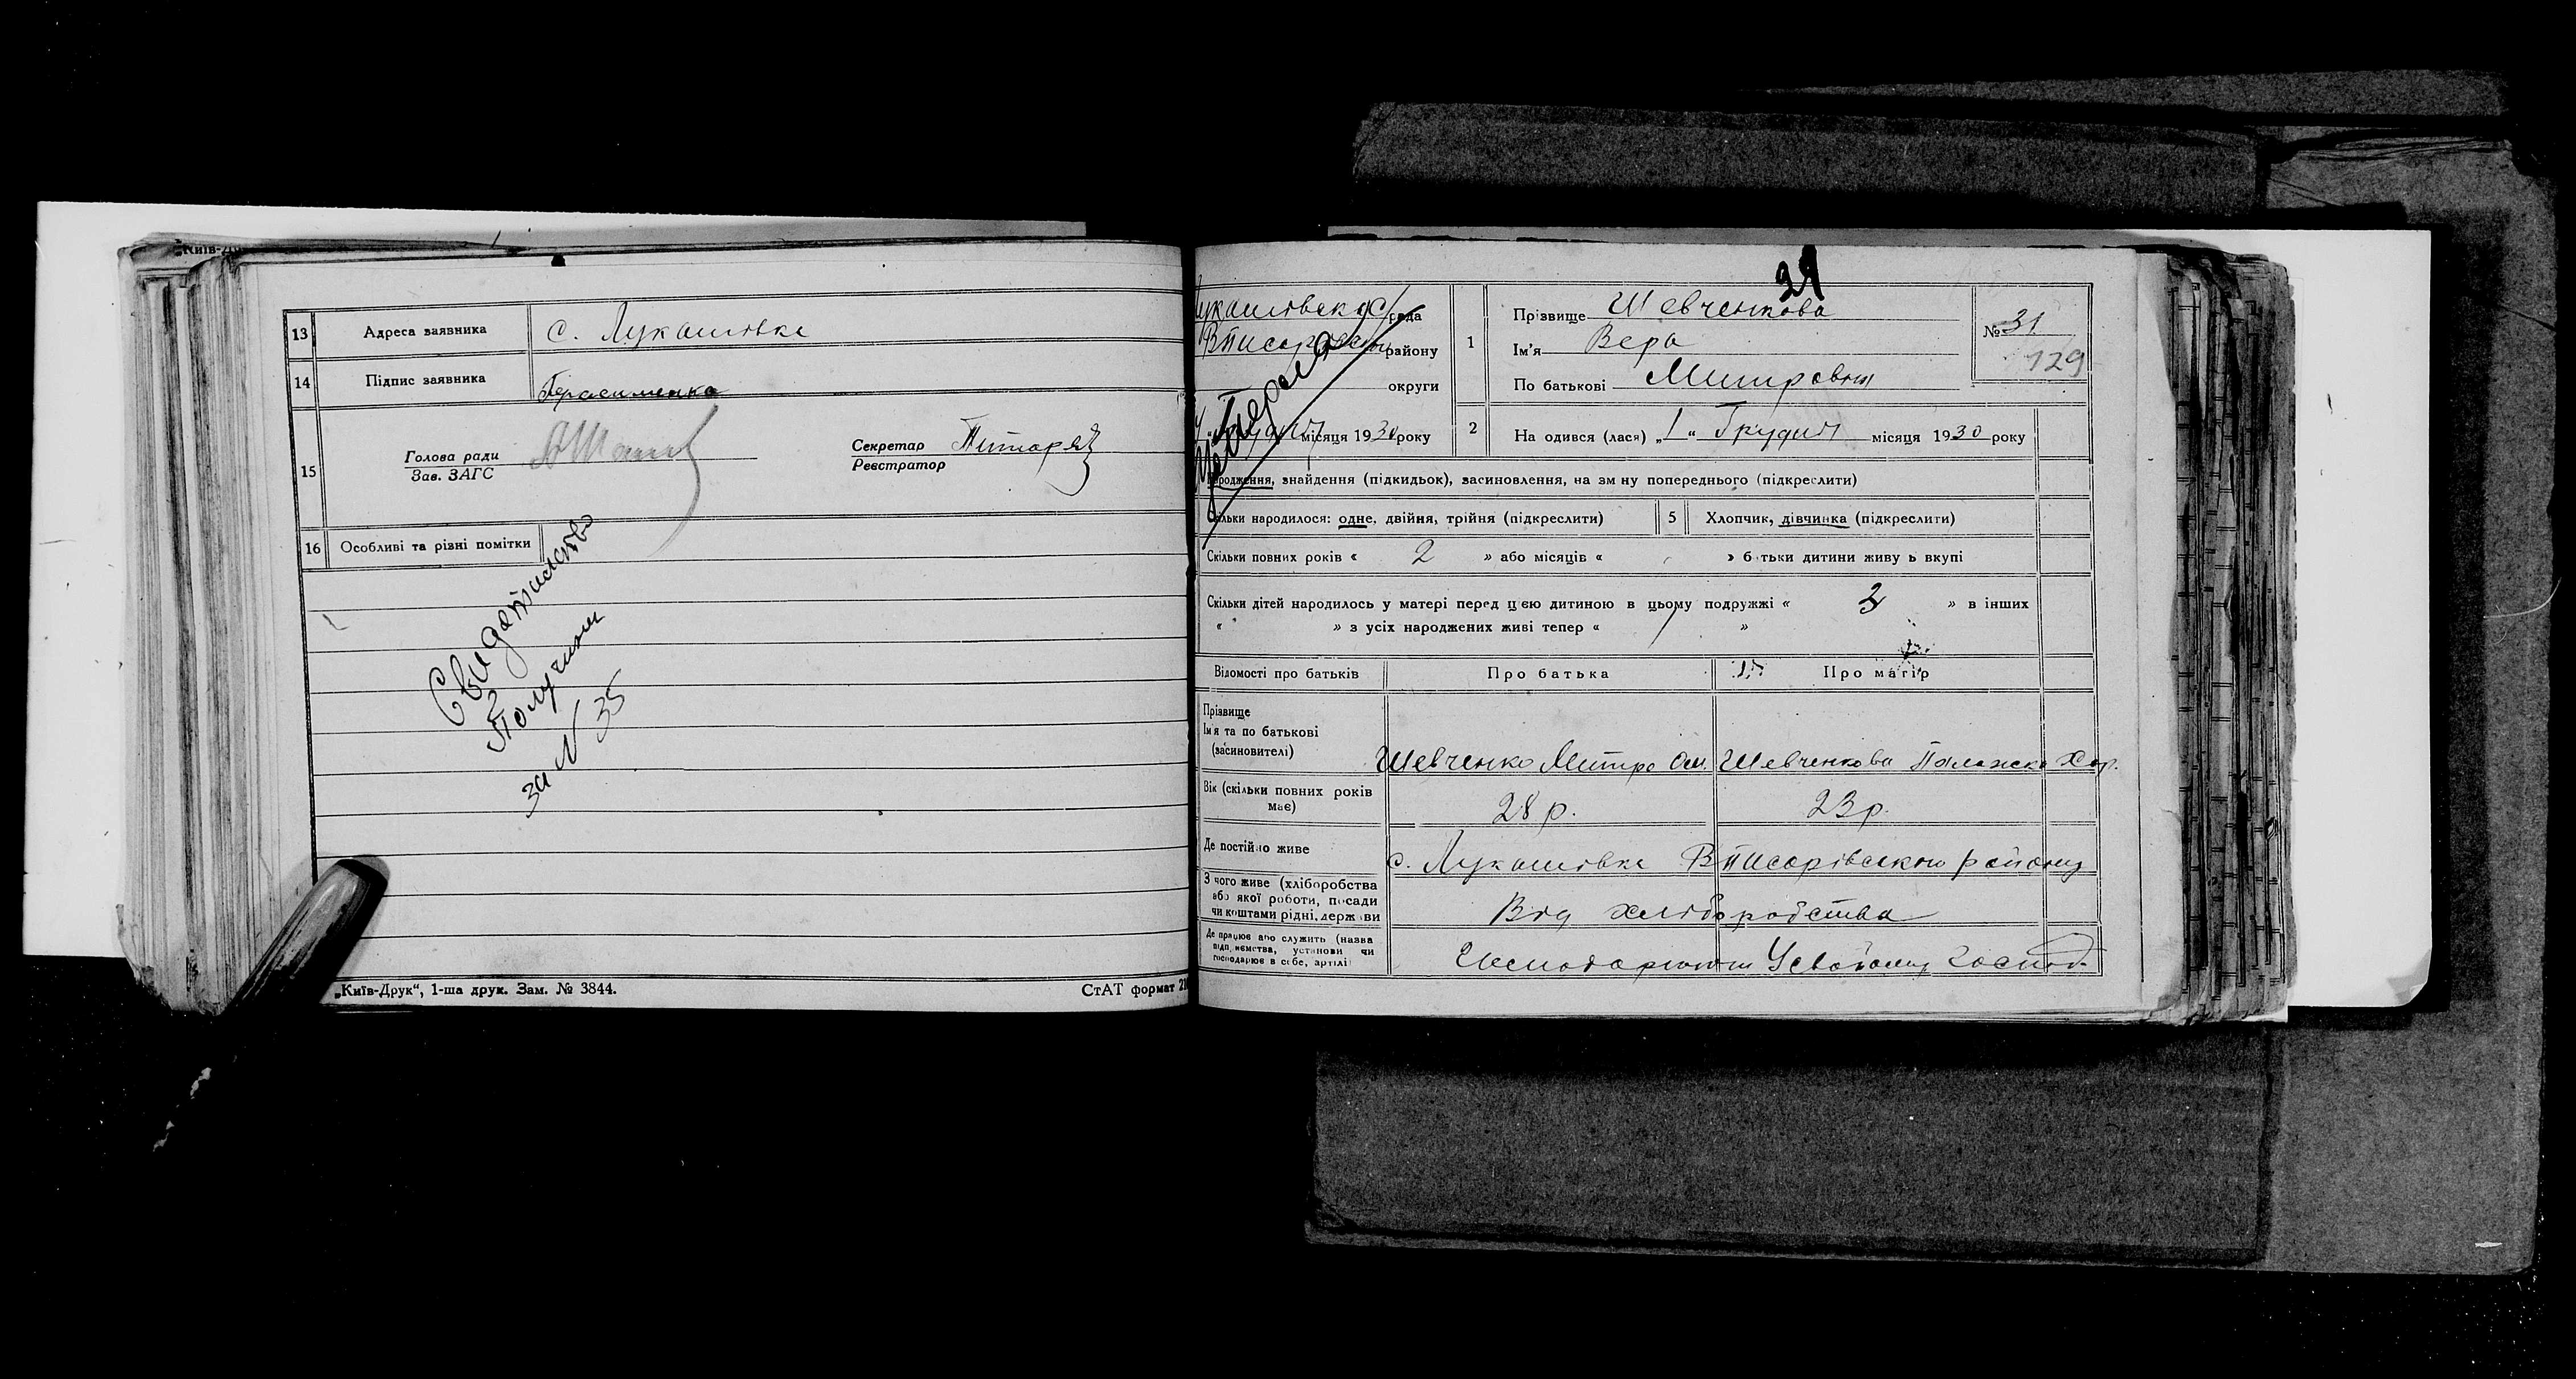 13 Адреса заявника с. Лукашовка
14 Підпис заявника Герасименко
15 Голова ради
Зав. ЗАГС
Секретар
Реєстратор
16 Особливі та різні помітки
Свидетильство
Получили
за N 35
„Київ-Друк“, 1-ша друк. Зам. № 3844.
СтАТ формат
31
рада
району
округи
місяця 1930 року
1 Прізвище Шевченкова
Ім'я Вера
По батькові Митровна
№ 31
129
2 На одився (лася) „1“ Грудня місяця 1930 року
народження, знайдення (підкидьок), засиновлення, на зм ну попереднього (підкреслити)
Скільки народилося: одне, двійня, трійня (підкреслити)
5 Хлопчик, дівчинка (підкреслити)
Скільки повних років « 2 » або місяців « » б тьки дитини живу ь вкупі
Скільки дітей народилось у матері перед цією дитиною в цьому подружжі « » в інших
« » з усіх народжених живі тепер « »
Відомості про батьків Про батька Про матір
Прізвище
Ім'я та по батькові
(засиновителі)
Шевченко Митро Ом. Шевченкова Палажка Хар.
Вік (скільки повних років
має)
28 р. 23 р.
Де постійно живе с. Лукашовка Вписарівського району
З чого живе (хліборобства
або якої роботи, посади
чи коштами рідні, держави
Від хліборобства
Де працює або служить (назва
підприємства, установи чи
господарює в себе, артілі
Усвойому господ.